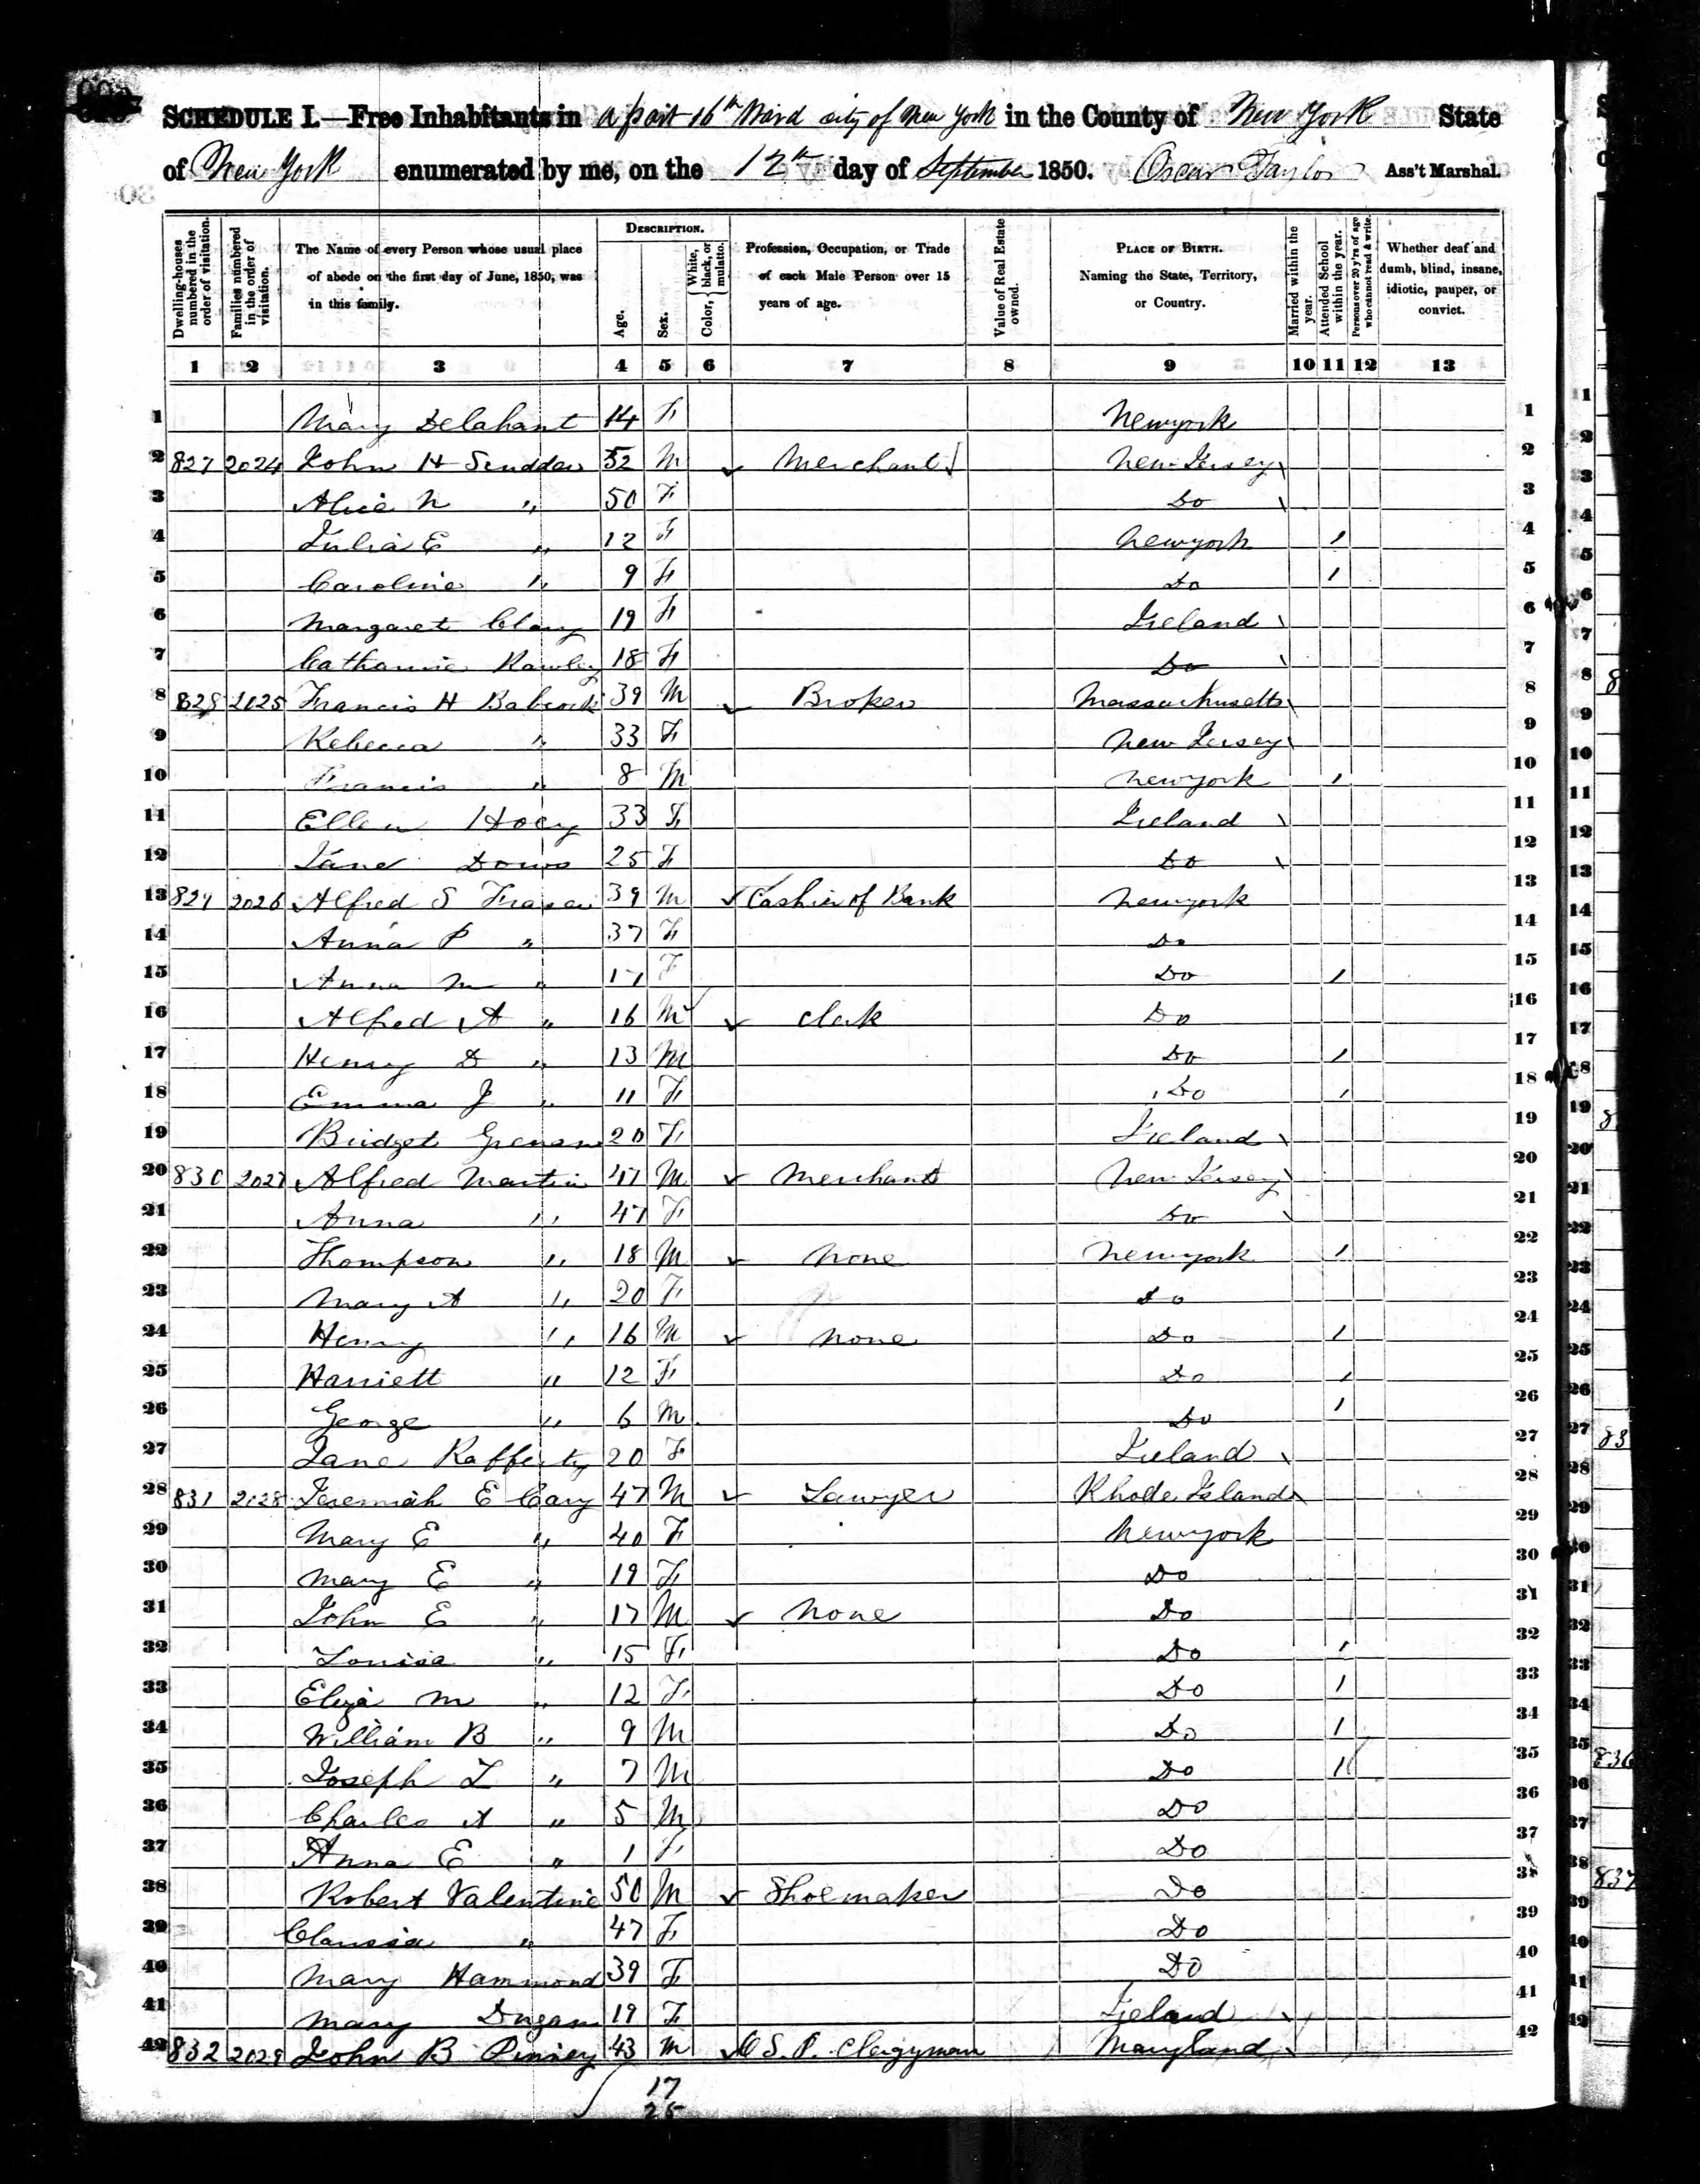 SCHEDULE I.—Free Inhabitants in a part 16th Ward city of New York in the County of New York State
of New York enumerated by me, on the 12th day of September 1850. Oscar Taylor Ass't Marshal.
Dwelling-houses numbered in the order of visitation.
Families numbered in the order of visitation.
The Name of every Person whose usual place of abode on the first day of June, 1850, was in this family.
DESCRIPTION.
Age.
Sex.
Color, { White, black, or mulatto.
Profession, Occupation, or Trade of each Male Person over 15 years of age.
Value of Real Estate owned.
PLACE OF BIRTH. Naming the State, Territory, or Country.
Married within the year.
Attended School within the year.
Persons over 20 y'rs of age who cannot read & write.
Whether deaf and dumb, blind, insane, idiotic, pauper, or convict.
1 2 3 4 5 6 7 8 9 10 11 12 13
1 Mary Delahant 14 F Newyork 1
2 827 2024 John H Scudder 52 M Merchant New Jersey 2
3 Alice N " 50 F Do 3
4 Julia E " 12 F Newyork / 4
5 Caroline " 9 F Do / 5
6 Margaret Clary 19 F Ireland 6
7 Catharine Rawley 18 F Do 7
8 828 2025 Francis H Babcock 39 M Broker Massachusetts 8
9 Rebecca " 33 F New Jersey 9
10 Francis " 8 M Newyork / 10
11 Ellen Hoey 33 F Ireland 11
12 Jane Dows 25 F Do 12
13 829 2026 Alfred S Fraser 39 M Cashier of Bank Newyork 13
14 Anna P " 37 F Do 14
15 Anna M " 17 F Do / 15
16 Alfred A " 16 M Clerk Do 16
17 Henry D " 13 M Do / 17
18 Emma J " 11 F Do / 18
19 Bridget 20 F Ireland 19
20 830 2027 Alfred Martin 47 M Merchant New Jersey 20
21 Anna " 47 F Do 21
22 Thompson " 18 M None Newyork / 22
23 Mary A " 20 F Do 23
24 Henry " 16 M None Do / 24
25 Harriett " 12 F Do / 25
26 George " 6 M Do / 26
27 Jane Rafferty 20 F Ireland 27
28 831 2028 Jeremiah E Cary 47 M Lawyer Rhode Island 28
29 Mary E " 40 F Newyork 29
30 Mary E " 19 F Do 30
31 John E " 17 M None Do 31
32 Louisa " 15 F Do / 32
33 Eliza M " 12 F Do / 33
34 William B " 9 M Do / 34
35 Joseph L " 7 M Do / 35
36 Charles A " 5 M Do 36
37 Anna E " 1 F Do 37
38 Robert Valentine 50 M Shoemaker Do 38
39 Clarissa " 47 F Do 39
40 Mary Hammond 39 F Do 40
41 Mary Dugan 19 F Ireland 41
42 832 2029 John B Pinney 43 M O S. P. Clergyman Maryland 42
17
25